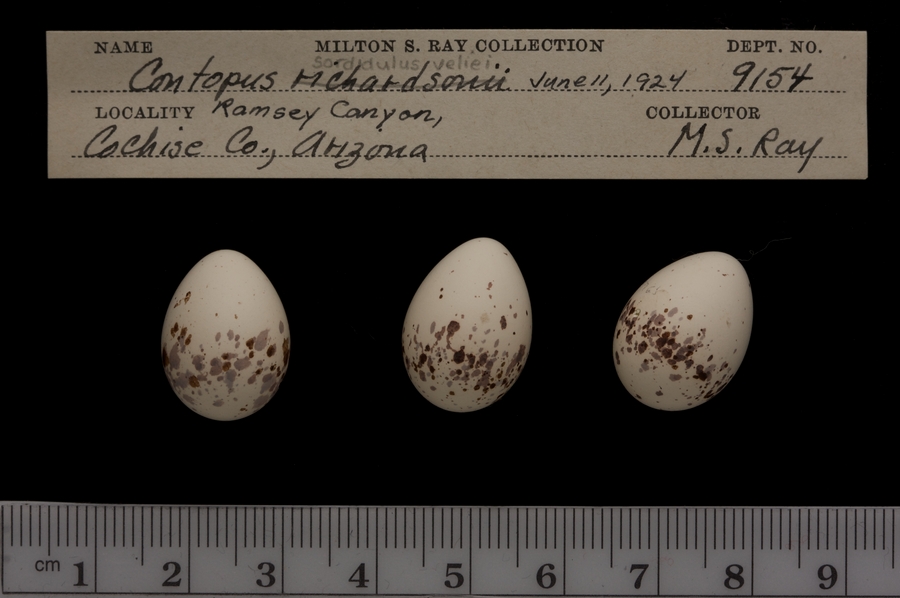 NAME MILTON S. RAY COLLECTION DEPT. NO.
sordidulus veliei
Contopus richardsonii June 11, 1924 9154
LOCALITY Ramsey Canyon, COLLECTOR
Cochise Co., Arizona M. S. Ray
cm 1 2 3 4 5 6 7 8 9